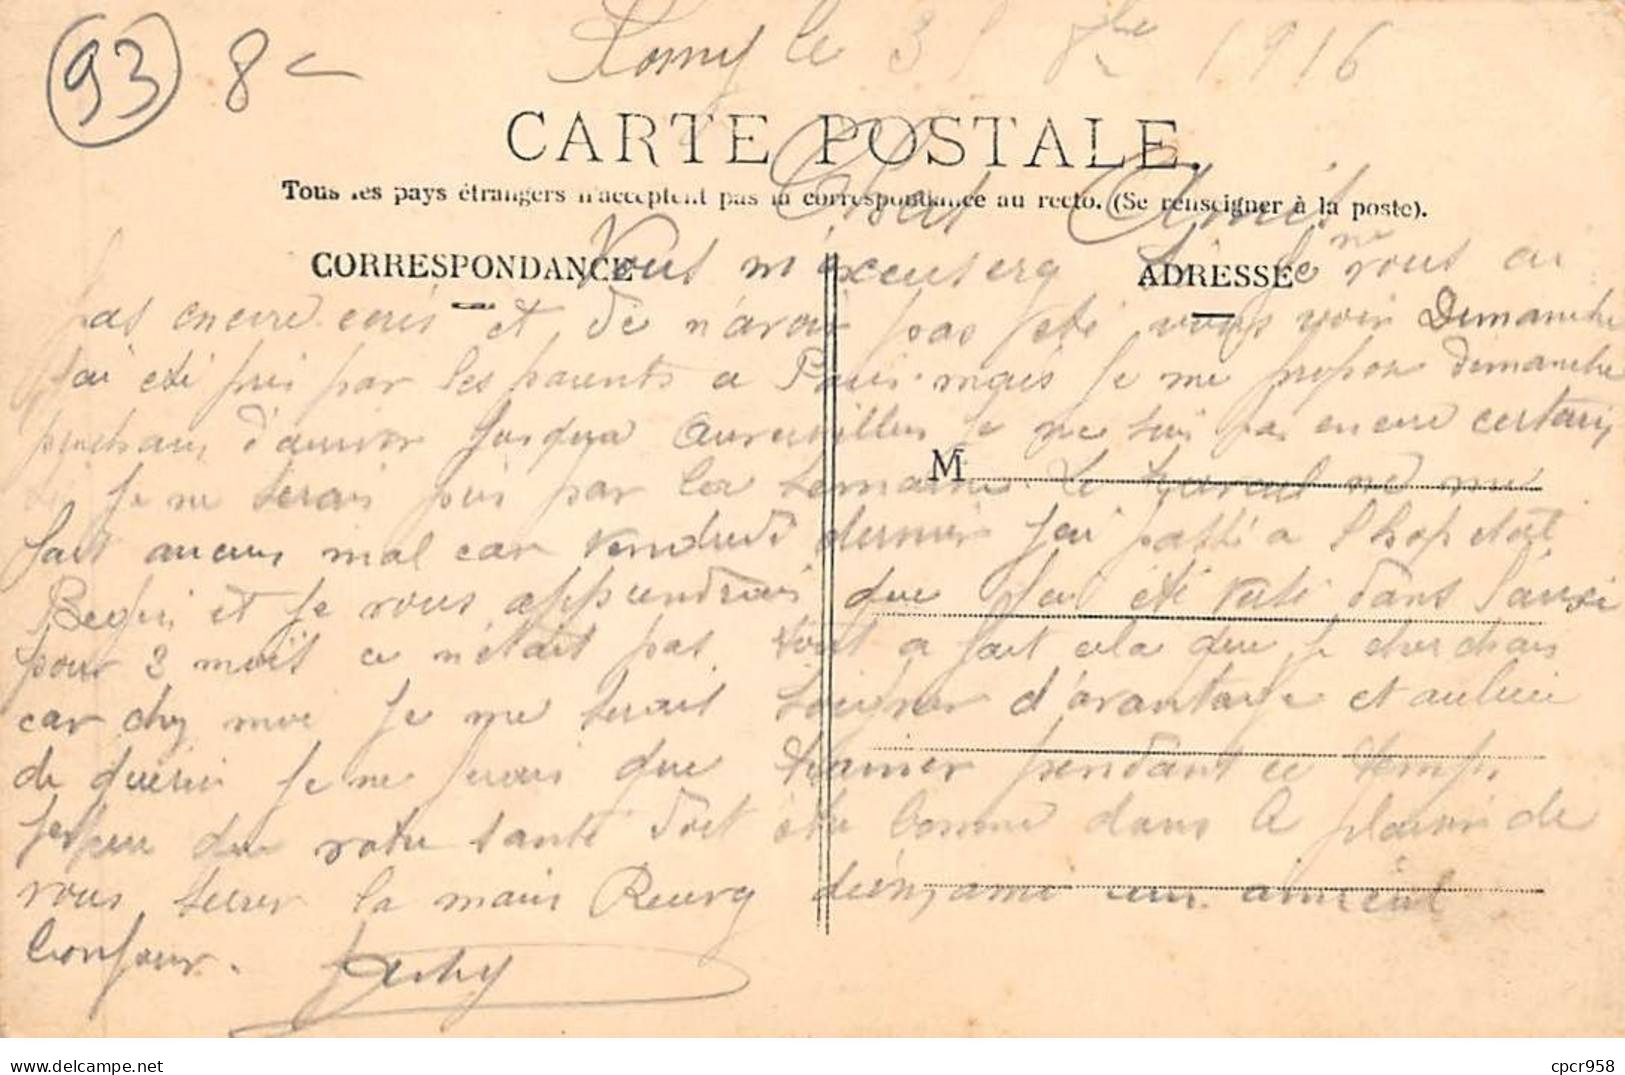 93 8
le 3 1916
CARTE POSTALE.
Chers Amis
Tous les pays étrangers n'acceptent pas la correspondance au recto. (Se renseigner à la poste).
CORRESPONDANCE
ADRESSE
Vous m'excuserg Je vous ai
pas encore et de n'avoir pas été vous voir Dimanche
J'ai été pris par les parents a Paris. mais je me propose dimanche
prochain d'arriver jusqua je ne suis pas encore certain
je ne serais pris par la semaine. Le travail ne me
M
fait aucun mal car Vendredi dernier j'ai passé a l'hop
Begin et je vous apprendrais que j'ai été dans
pour 2 mois ce n'était pas tout a fait cela que je cherchais
car chez moi je me serais soigner d'avantage et aulieu
de guérir je ne ferais que trainer pendant ce temps
J'espere que votre santé doit être bonne dans le plaisir de
vous serrer la main Recevez ami un amical
bonjour.
cpcr958